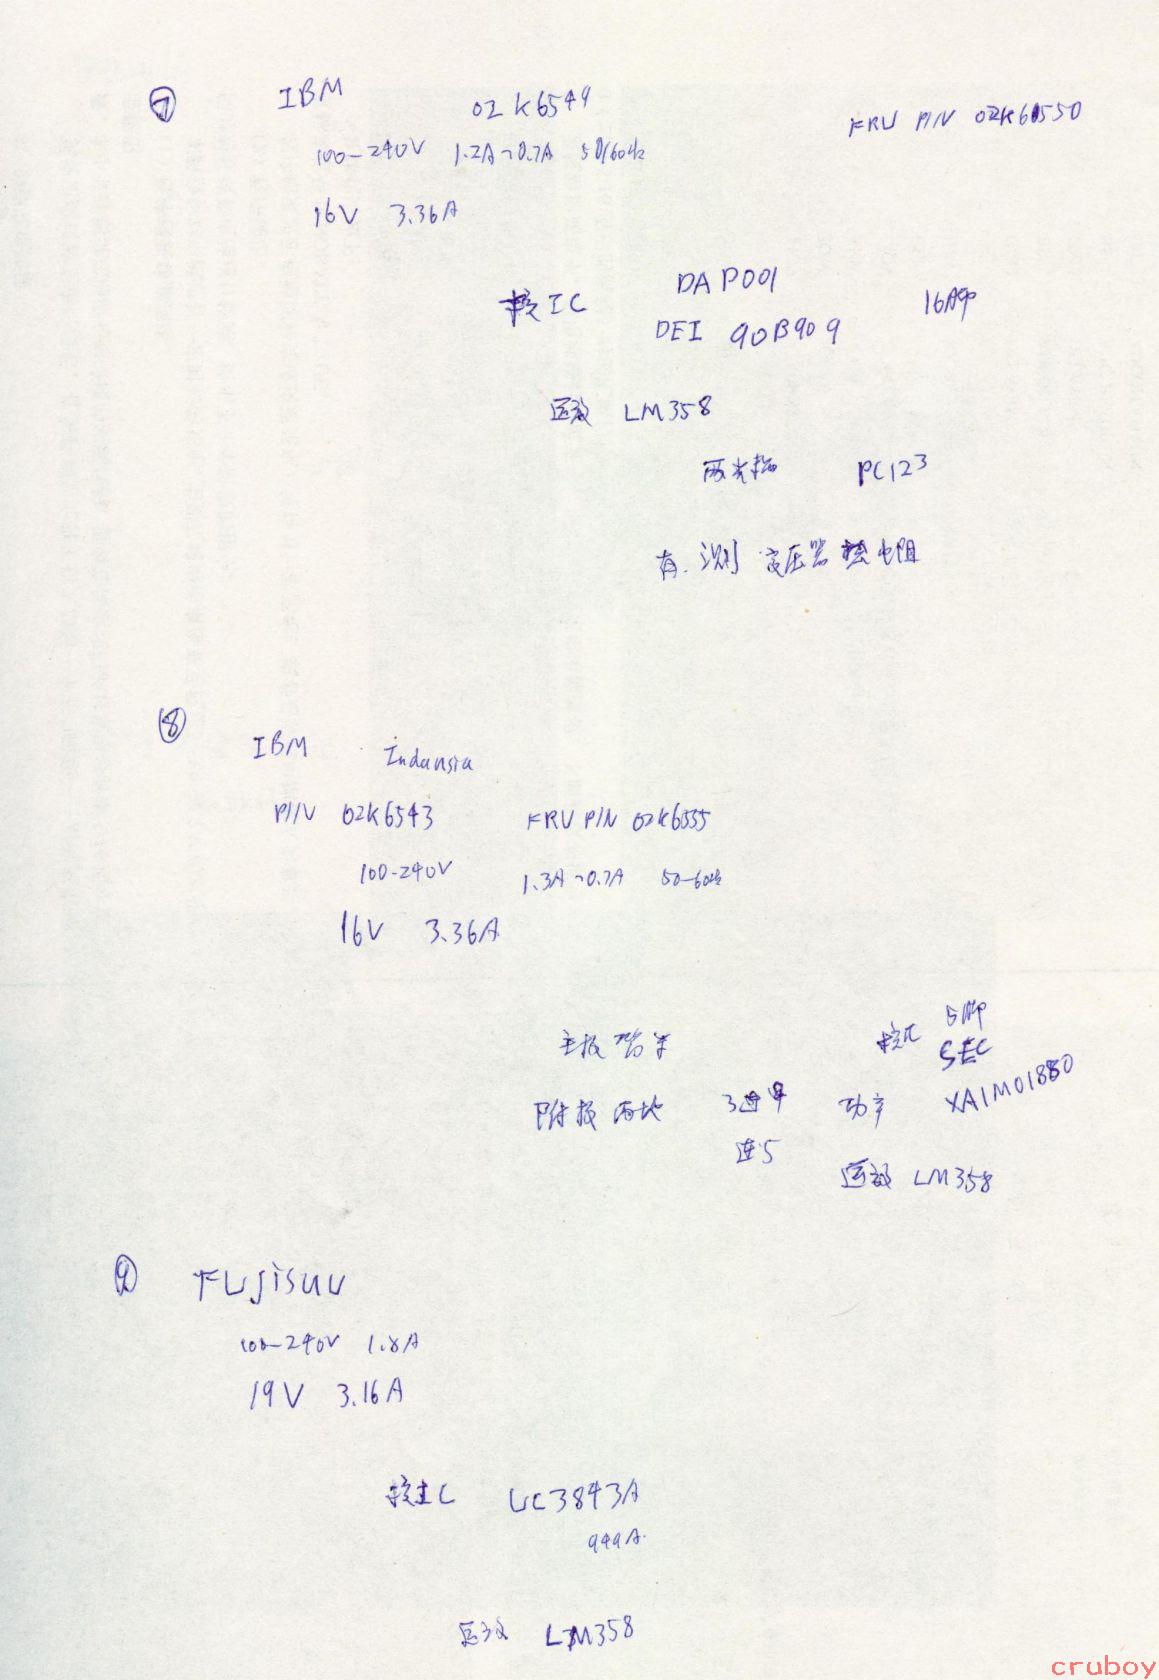 ⑦ IBM 02K6549 FRU P/N 02K6550
100-240V 1.2A~0.7A 50/60Hz
16V 3.36A
核IC DAP001 16脚
DEI 90B909
运放 LM358
两光耦 PC123
有测变压器 热电阻
⑧ IBM Indansia
P/N 02K6543 FRU P/N 02K6555
100-240V 1.3A~0.7A 50-60Hz
16V 3.36A
5脚
主板 核IC SEC
附板 两地 3进 功率 XA1M01880
进5
运放 LM358
⑨ FUJISUU
100-240V 1.8A
19V 3.16A
核IC UC3843A
949A
运放 LM358
cruboy